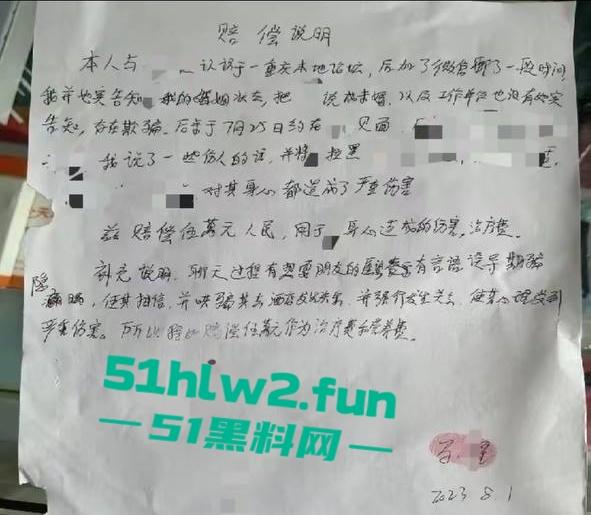 赔偿说明
本人与 认识于一重庆本地论坛,后加了微信聊了一段时间
我并也实告知 我的婚姻状态,把 说成未婚,以及工作单位也没有如实
告知,存在欺骗。后于7月25日约在 见面,
我说了一些伤人的话,并将 拉黑
对其身心都造成了严重伤害
兹赔偿伍萬元人民,用于 身心造成的伤害。治疗费。
补充说明,聊天过程有想要朋友的 有言语误导欺骗
隐瞒,使其相信,并哄骗其去酒店 并强行发生关 使其心理受到
严重伤害。所以 赔偿伍萬元作为治疗费和营养费。
51hlw2.fun
51黑料网
2023 8.1